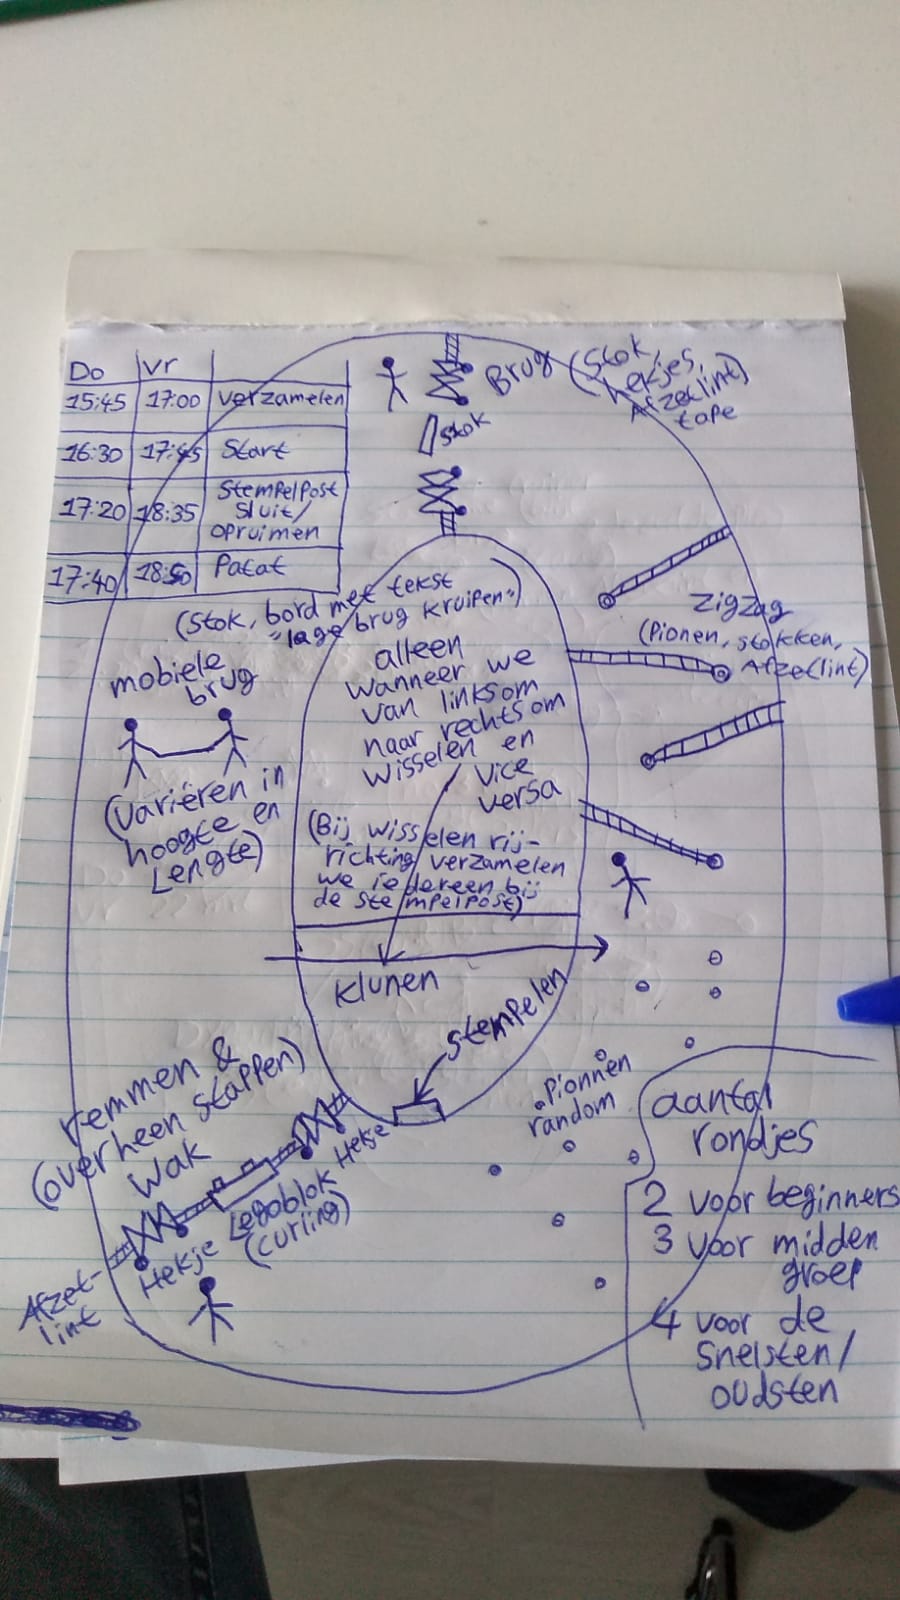 Do Vr
15:45 17:00 verzamelen
16:30 17:45 Start
17:20 18:35 Stempelpost
sluit/
opruimen
17:40 18:50 Patat
Brug (Stok,
hekjes,
Afzetlint)
tape
Stok
(Stok, bord met tekst
"lage brug kruipen")
mobiele
brug
(variëren in
hoogte en
Lengte)
alleen
wanneer we
van linksom
naar rechtsom
wisselen en
vice
versa
(Bij wisselen rij-
richting verzamelen
we iedereen bij
de stempelpost)
zigzag
(Pionen, stokken,
Afzetlint)
Klunen
Stempelen
remmen &
(overheen stappen)
Wak
Hekje
Legoblok
(curling)
Hekje
Afzet-
lint
Pionnen
random
aantal
rondjes
2 voor beginners
3 voor midden
groep
4 voor de
snelsten/
oudsten